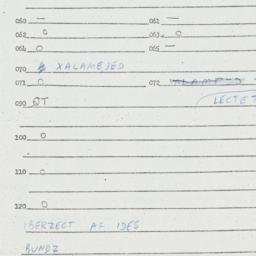 060 — 061 —
062 0 063 0
064 0 065 —
070 XALAMEJSED
071 0 072
090 QT LECTE
100 0
110 0
120 0
IBERZECT AF IDES
BUNDZ